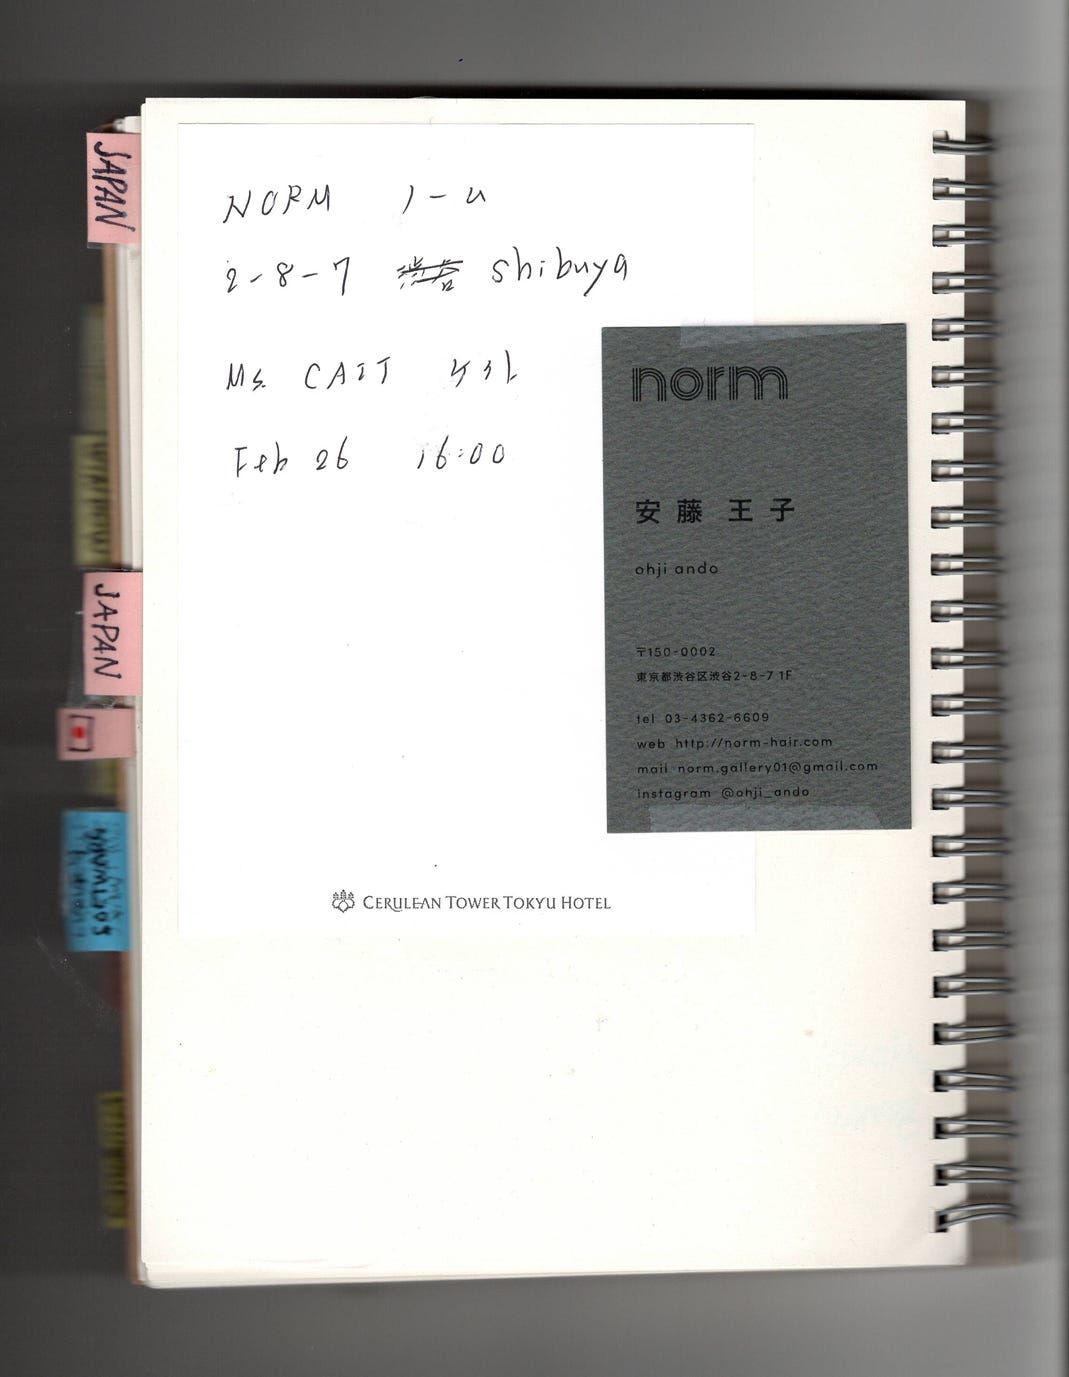 JAPAN
NORM ノーム
2-8-7 渋谷 shibuya
Ms. CAIT ケイト
Feb 26 16:00
norm
安藤 王子
ohji ando
〒150-0002
東京都渋谷区渋谷2-8-7 1F
tel 03-4362-6609
web http://norm-hair.com
mail norm.gallery01@gmail.com
instagram @ohji_ando
JAPAN
CERULEAN TOWER TOKYU HOTEL